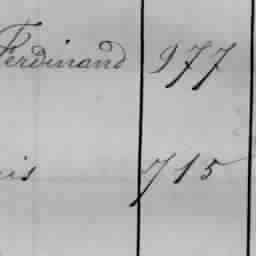 Ferdinand 977
is 715